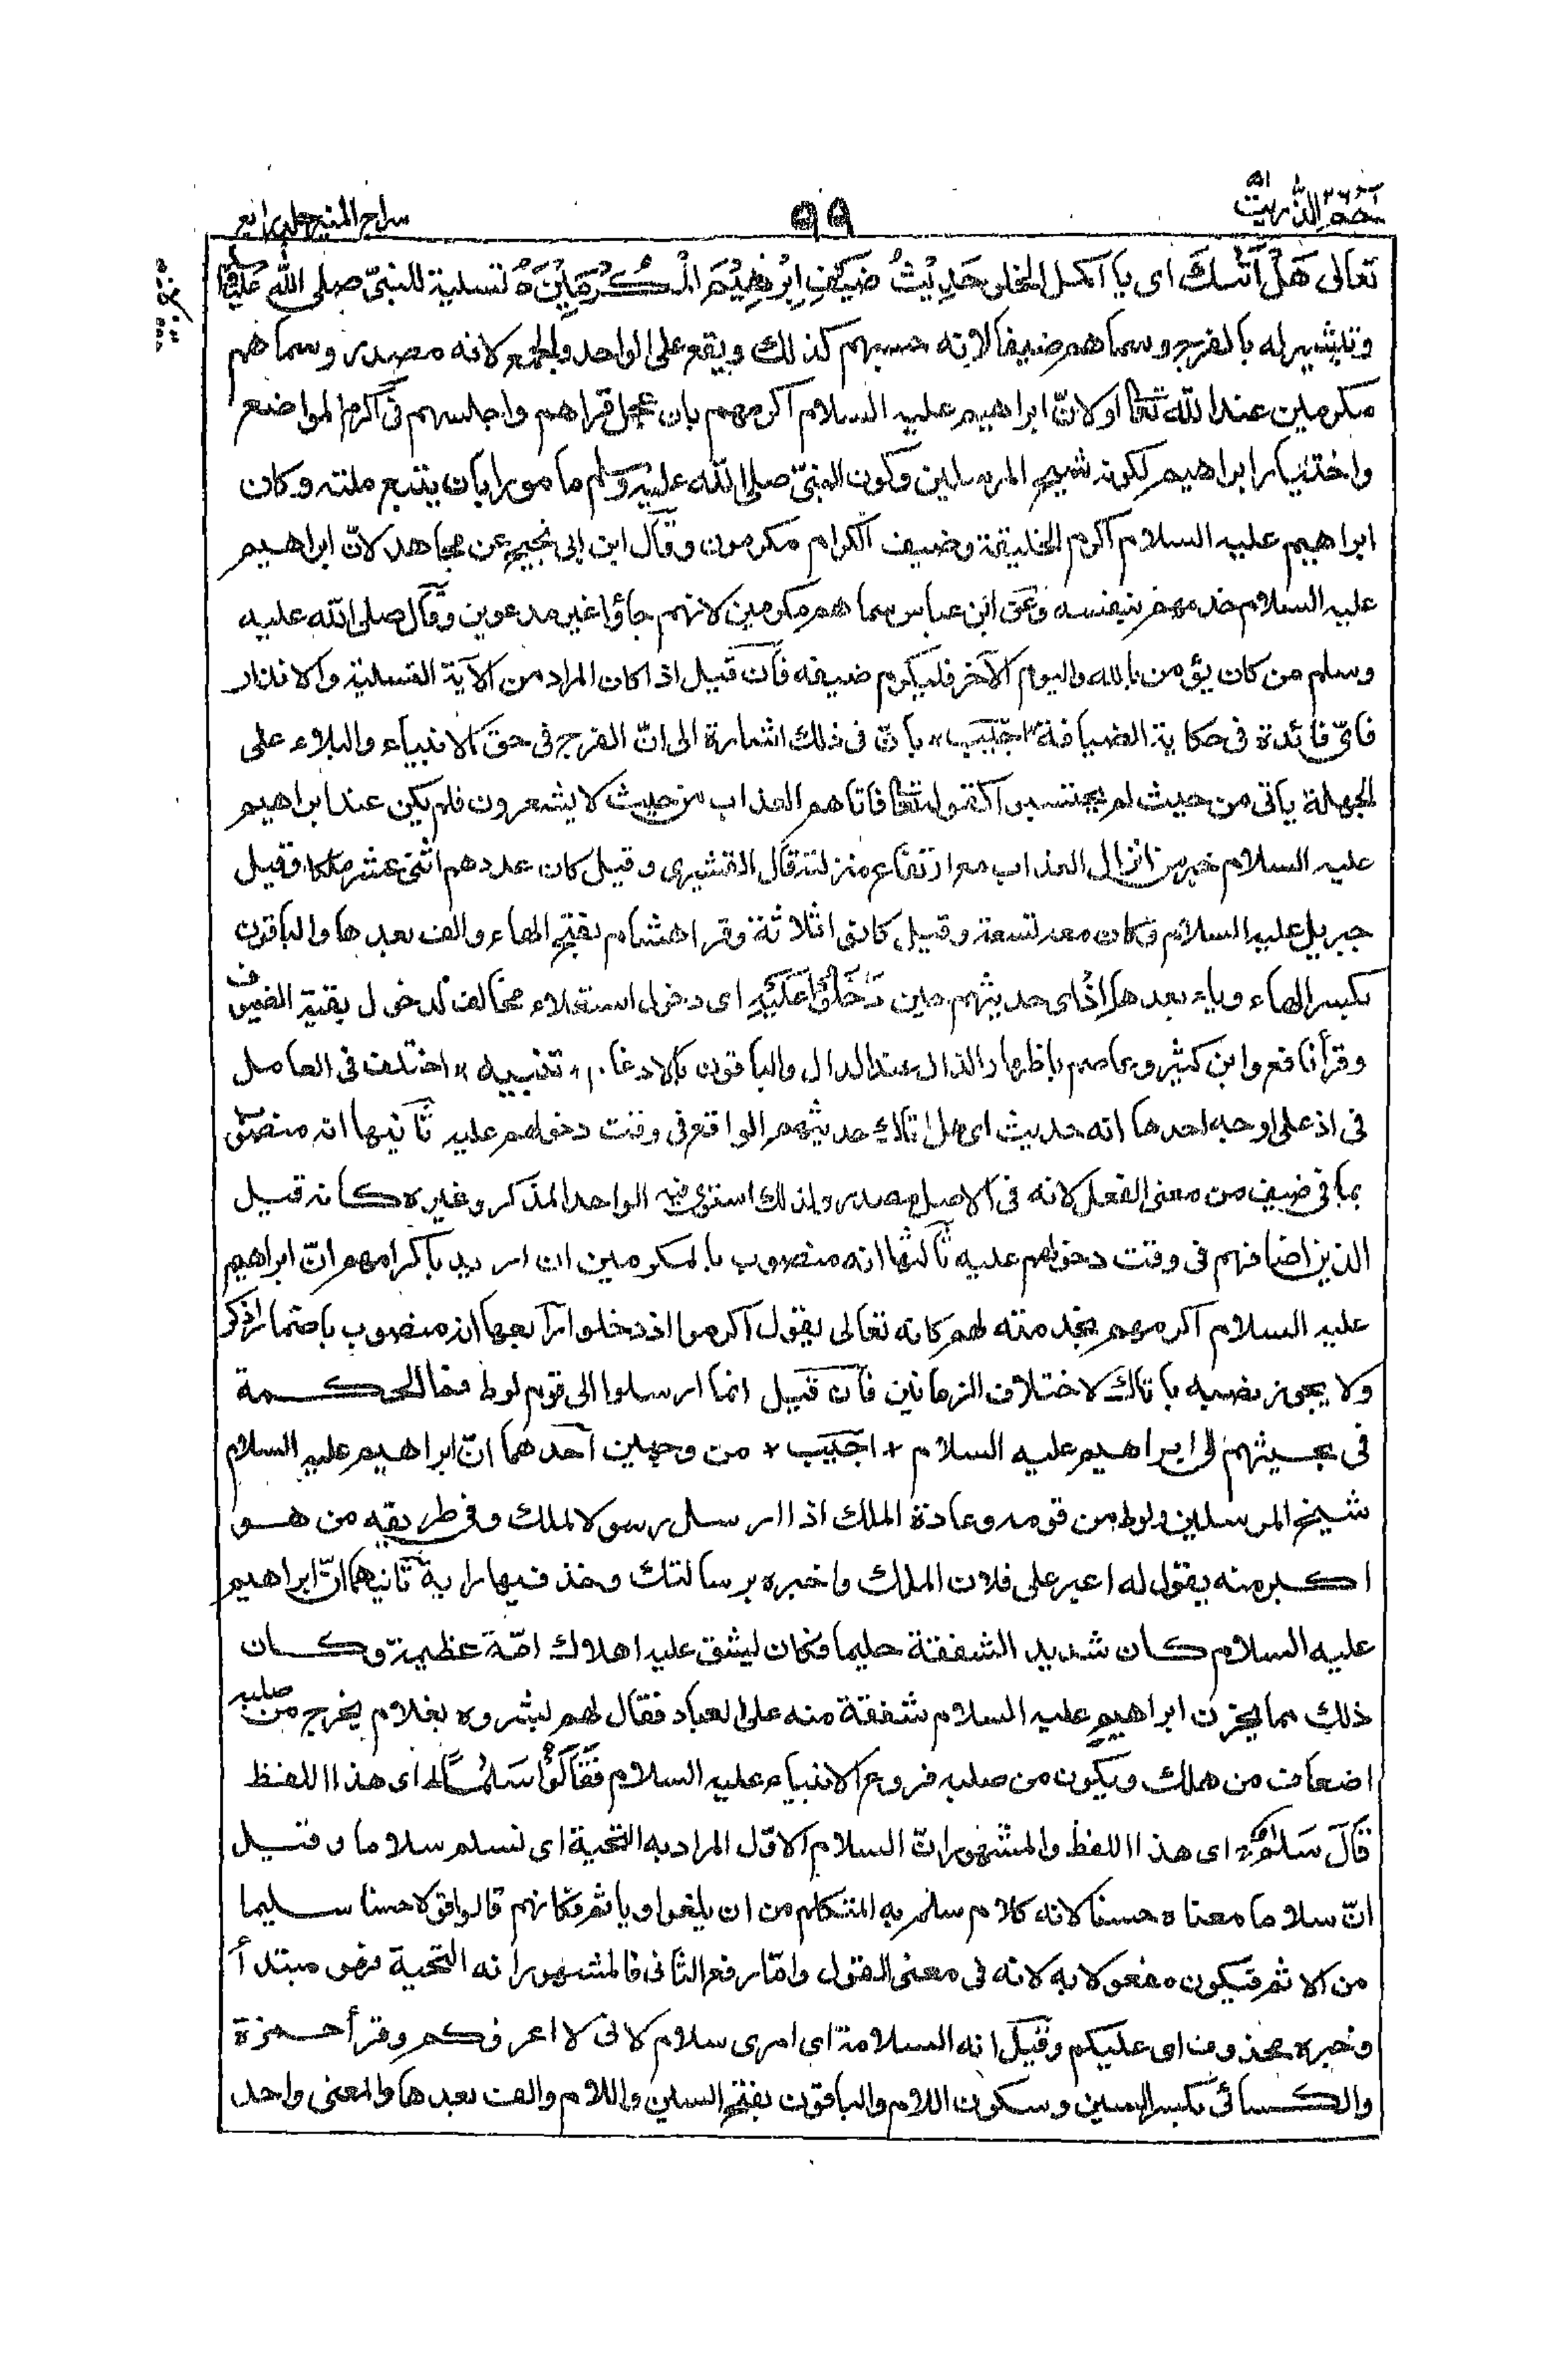 الذّٰريٰت ٥١
٩٩
سراج المنير جلد رابع
تعالى هَلْ اَتٰىكَ اى يا اكمل الخلق حَدِيْثُ ضَيْفِ اِبْرٰهِيْمَ الْمُكْرَمِيْنَ تسلية للنبىّ صلى الله عليه وسلم
وتبشير له بالفرج وسماهم ضيفا لانه حسبهم كذلك ويقع على الواحد والجمع لانه مصدر وسماهم
مكرمين عند الله تعالى او لانّ ابراهيم عليه السلام اكرمهم بان عجل قراهم واجلسهم فى اكرم المواضع
واختيار ابراهيم لكونه شيخ المرسلين وكون النبىّ صلى الله عليه وسلم مامورا بان يتبع ملته وكان
ابراهيم عليه السلام اكرم الخليقة وضيف الكرام مكرمون وقال ابن ابى نجيح عن مجاهد لانّ ابراهيم
عليه السلام خدمهم بنفسه وعن ابن عباس سماهم مكرمين لانهم جاؤا غير مدعوين وقال صلى الله عليه
وسلم من كان يؤمن بالله واليوم الآخر فليكرم ضيفه فان قيل اذا كان المراد من الآية التسلية والانذار
فاىّ فائدة فى حكاية الضيافة "اجيب" بانّ فى ذلك اشارة الى انّ الفرج فى حق الانبياء والبلاء على
الجهلة ياتى من حيث لم يحتسبوا كقوله تعالى فاتاهم العذاب من حيث لا يشعرون فلم يكن عند ابراهيم
عليه السلام خبر من انزال العذاب مع ارتفاع منزلته قال القشيرى وقيل كان عددهم اثنى عشر ملكا وقيل
جبريل عليه السلام وكان معه تسعة وقيل كانوا ثلاثة وقرا هشام بفتح الهاء والف بعدها والباقون
بكسر الهاء وياء بعدها اِذْ اى حديثهم حين دَخَلُوْا عَلَيْهِ اى دخول استعلاء مخالف لدخول بقية الضيوف
وقرأ نافع وابن كثير وعاصم باظهار الذال عند الدال والباقون بالادغام "تنبيه" اختلف فى العامل
فى اذ على اوجه احدها انه حديث اى هل اتاك حديثهم الواقع فى وقت دخولهم عليه ثانيها انه منصوب
بما فى ضيف من معنى الفعل لانه فى الاصل مصدر ولذلك استوى فيه الواحد المذكر وغيره كانه قيل
الذين اضافهم فى وقت دخولهم عليه ثالثها انه منصوب بالمكرمين ان اريد باكرامهم انّ ابراهيم
عليه السلام اكرمهم بخدمته لهم كانه تعالى يقول اكرموا اذ دخلوا رابعها انه منصوب باضمار اذكر
ولا يجوز نصبه باتاك لاختلاف الزمانين فان قيل انما ارسلوا الى قوم لوط فما الحكمة
فى مجيئهم الى ابراهيم عليه السلام * اجيب * من وجهين احدهما انّ ابراهيم عليه السلام
شيخ المرسلين ولوط من قومه وعادة الملك اذا ارسل رسولا لملك وفى طريقه من هو
اكبر منه يقول له اعبر على فلان الملك واخبره برسالتك وخذ فيها رايه ثانيهما انّ ابراهيم
عليه السلام كان شديد الشفقة حليما فكان يشق عليه اهلاك امّة عظيمة وكان
ذلك مما يحزن ابراهيم عليه السلام شفقة منه على العباد فقال لهم بشروه بغلام يخرج من صلبه
اضعاف من هلك ويكون من صلبه فروع الانبياء عليه السلام فَقَالُوْا سَلٰمًا اى هذا اللفظ
قَالَ سَلٰمٌ اى هذا اللفظ والمشهور انّ السلام الاوّل المراد به التحية اى نسلم سلاما وقيل
انّ سلاما معناه حسنا لانه كلام سلم به المتكلم من ان يلغو او ياثم فكانهم قالوا قولا حسنا سليما
من الاثم فيكون مفعولا به لانه فى معنى القول وامّا رفع الثانى فالمشهور انه التحية فهو مبتدأ
وخبره محذوف اى عليكم وقيل انه السلامة اى امرى سلام لانى لا اعرفكم وقرأ حمزة
والكسائى بكسر السين وسكون اللام والباقون بفتح السين واللام والف بعدها والمعنى واحد